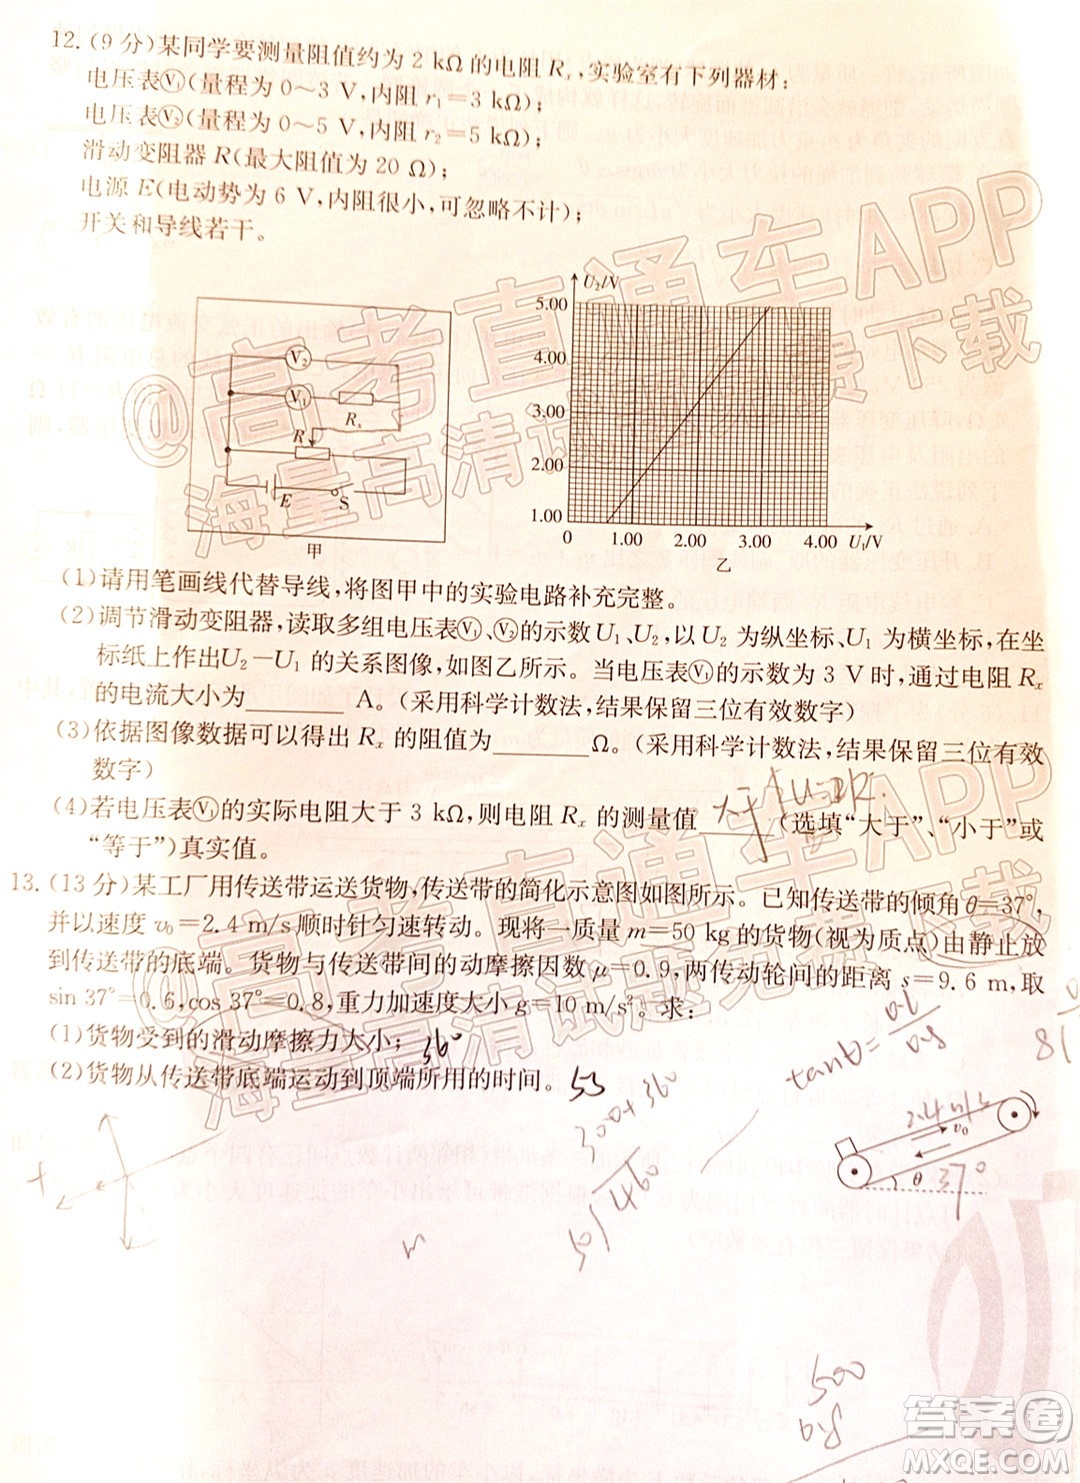 12.(9分)某同学要测量阻值约为2 kΩ的电阻Rₓ,实验室有下列器材:
电压表Ⓥ₁(量程为0～3 V,内阻r₁=3 kΩ);
电压表Ⓥ₂(量程为0～5 V,内阻r₂=5 kΩ);
滑动变阻器R(最大阻值为20 Ω);
电源E(电动势为6 V,内阻很小,可忽略不计);
开关和导线若干。
V₂
V₁
Rₓ
R
E
S
甲
U₂/V
5.00
4.00
3.00
2.00
1.00
0 1.00 2.00 3.00 4.00 U₁/V
乙
(1)请用笔画线代替导线,将图甲中的实验电路补充完整。
(2)调节滑动变阻器,读取多组电压表Ⓥ₁、Ⓥ₂的示数U₁、U₂,以U₂为纵坐标、U₁为横坐标,在坐
标纸上作出U₂-U₁的关系图像,如图乙所示。当电压表Ⓥ₁的示数为3 V时,通过电阻Rₓ
的电流大小为________A。(采用科学计数法,结果保留三位有效数字)
(3)依据图像数据可以得出Rₓ的阻值为________Ω。(采用科学计数法,结果保留三位有效
数字)
(4)若电压表Ⓥ₁的实际电阻大于3 kΩ,则电阻Rₓ的测量值 大于 (选填“大于”、“小于”或
“等于”)真实值。
13.(13分)某工厂用传送带运送货物,传送带的简化示意图如图所示。已知传送带的倾角θ=37°,
并以速度v₀=2.4 m/s顺时针匀速转动。现将一质量m=50 kg的货物(视为质点)由静止放
到传送带的底端。货物与传送带间的动摩擦因数μ=0.9,两传动轮间的距离s=9.6 m,取
sin 37°=0.6,cos 37°=0.8,重力加速度大小g=10 m/s²。求:
(1)货物受到的滑动摩擦力大小; 360
(2)货物从传送带底端运动到顶端所用的时间。 5s
tanθ=0.6/0.8
81
300+360
50/460
2.4m/s
v₀
θ 37°
m
500
0.8
@高考直通车APP
海量高清试题免费下载
@高考直通车APP
海量高清试题免费下载
答案圈
MXQE.COM